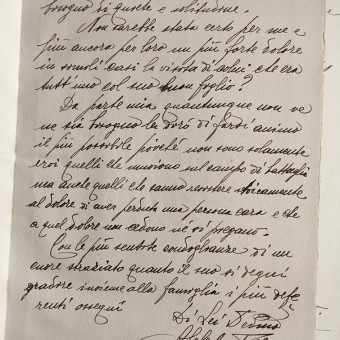 bisogno di quiete e solitudine.
Non sarebbe stata certo per me e
più ancora per loro un più forte dolore
in simili casi la visita di colui che era
tutt'uno col suo buon figlio?
Da parte mia quantunque non ve
ne sia bisogno le dirò di farsi animo
il più possibile poiché non sono solamente
eroi quelli che muoiono sul campo di battaglia
ma anche quelli che sanno resistere stoicamente
al dolore di aver perduta una persona cara e che
a quel dolore non cedono né si piegano.
Con le più sentite condoglianze di un
cuore straziato quanto il suo si degni
gradire insieme alla famiglia i più defe
renti ossequi
Di Lei